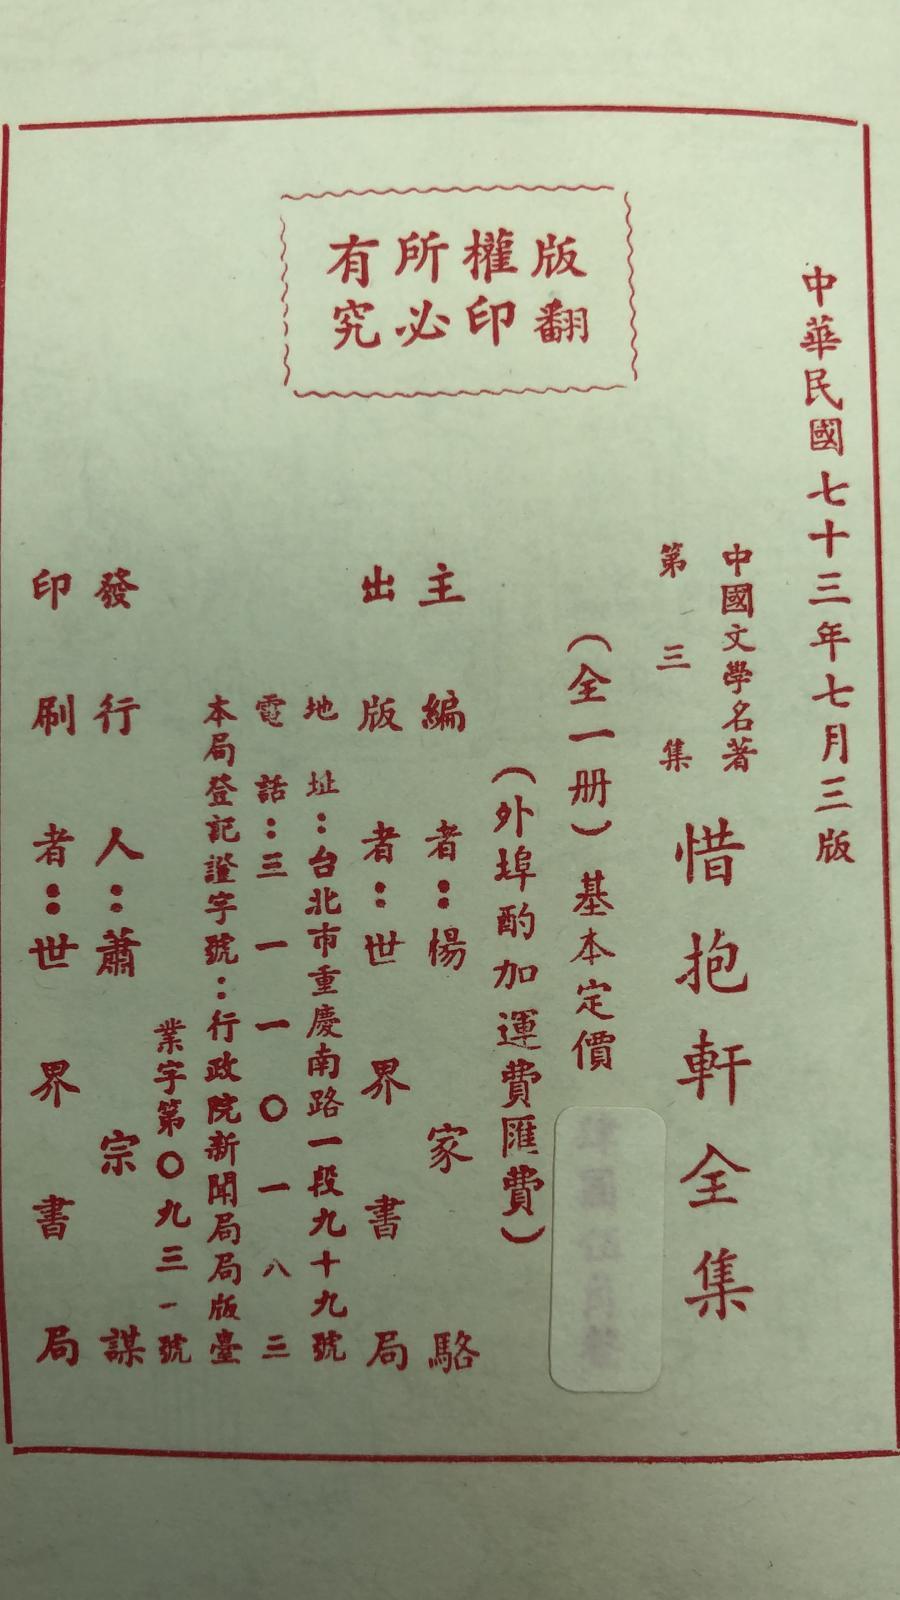 版權所有
翻印必究
中華民國七十三年七月三版
中國文學名著
第三集
惜抱軒全集
（全一册）基本定價
（外埠酌加運費匯費）
主編者：楊家駱
出版者：世界書局
地址：台北市重慶南路一段九十九號
電話：三一一〇一八三
本局登記證字號：行政院新聞局局版臺
業字第〇九三一號
發行人：蕭宗謀
印刷者：世界書局